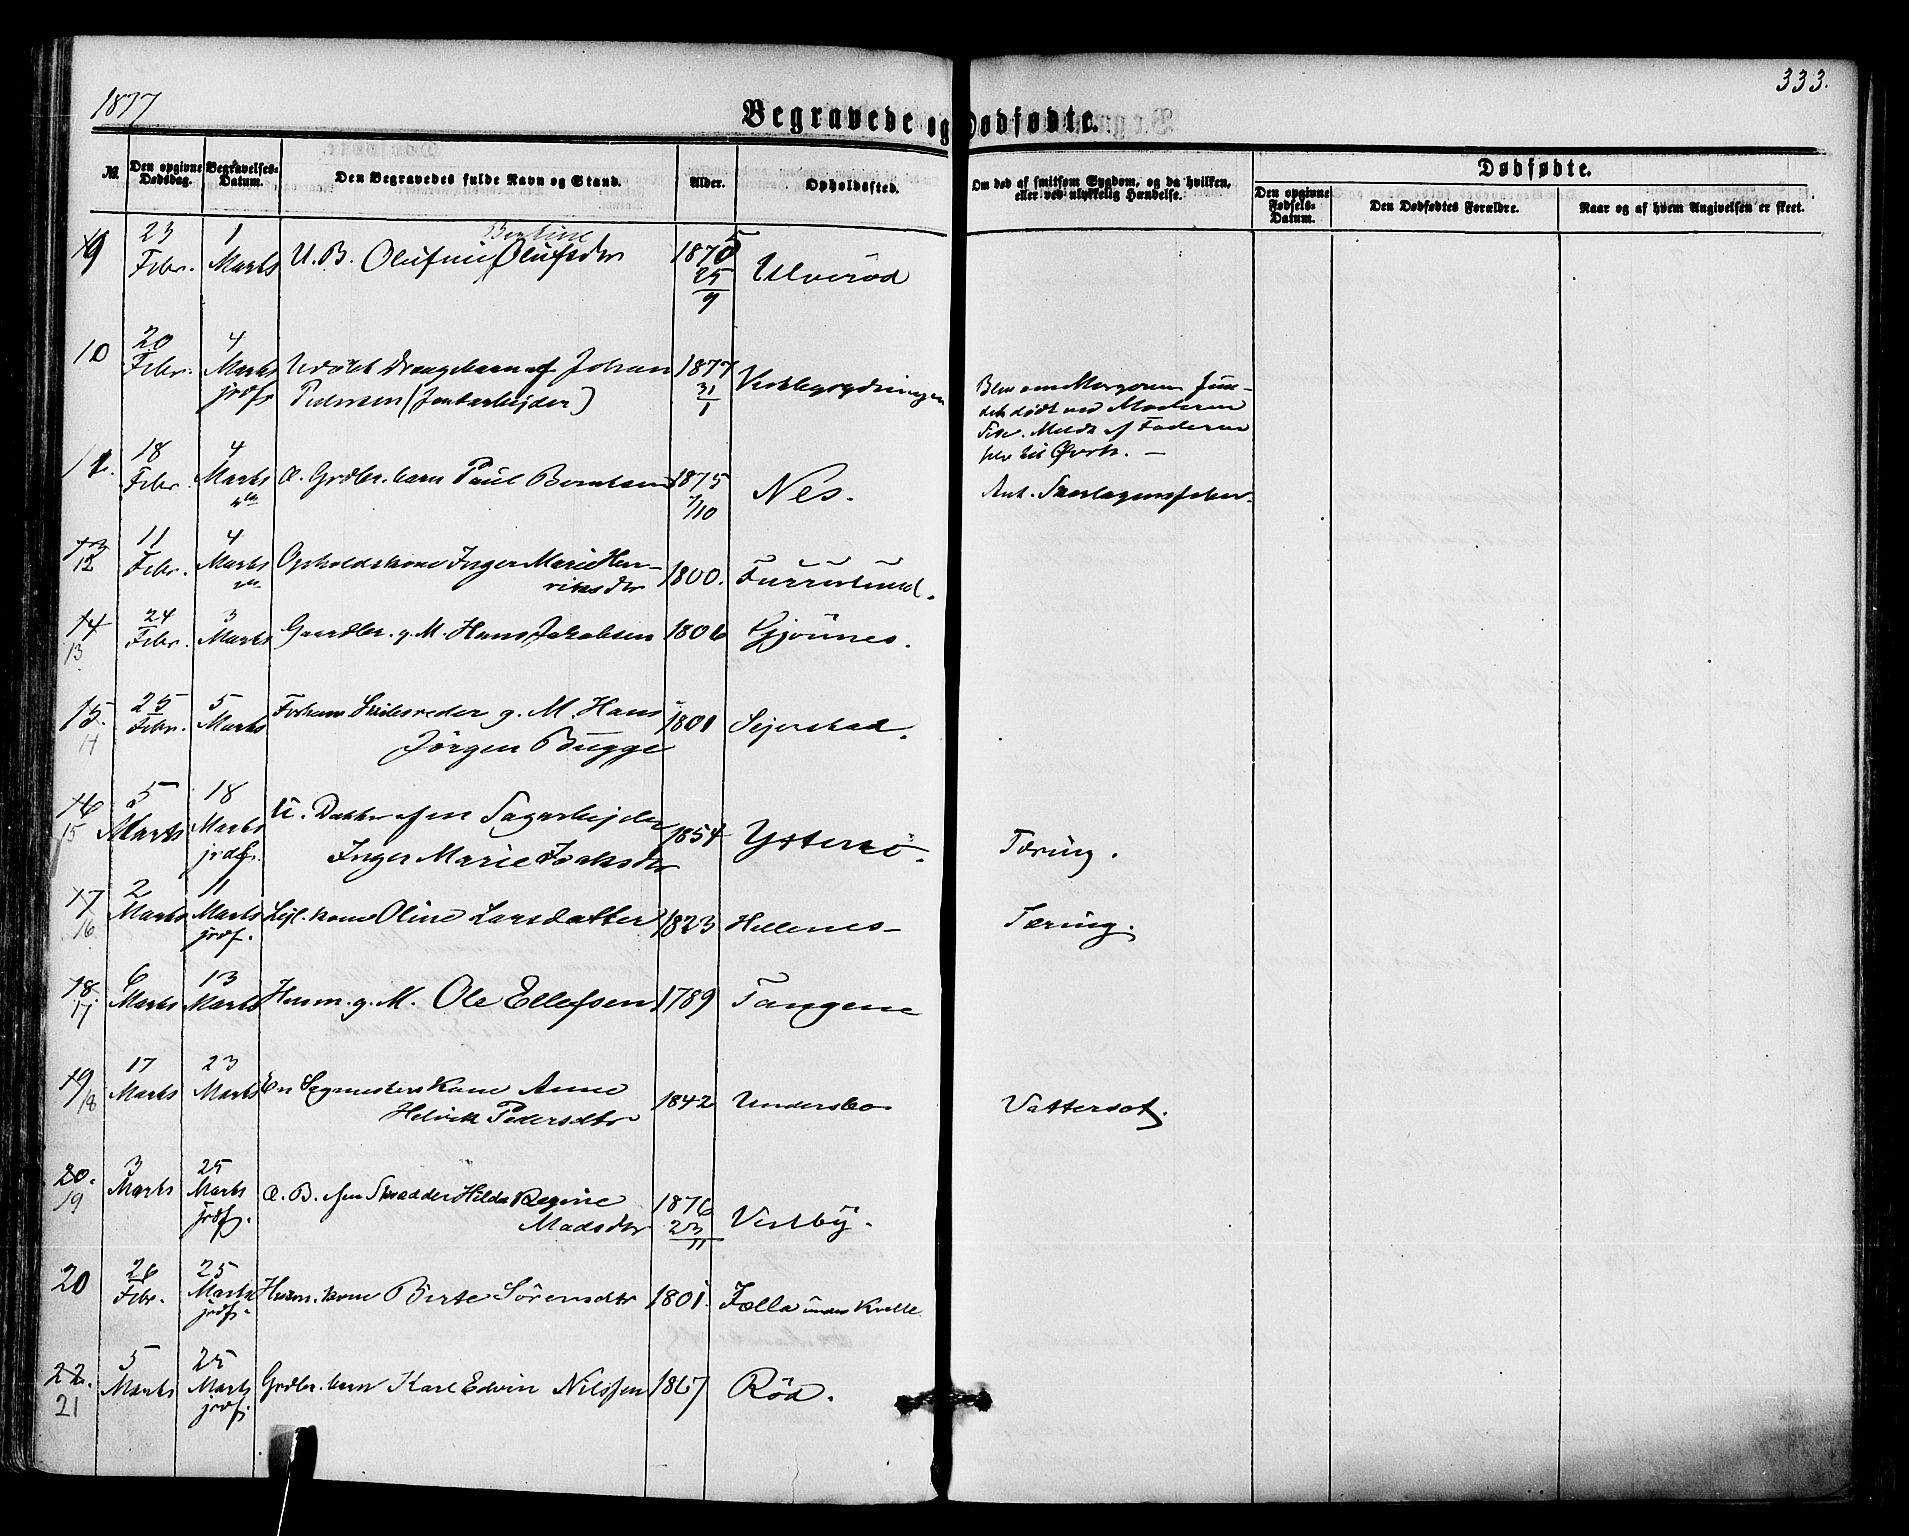 1877
333.
Begravede og Dødfødte.
№
Den opgivne Dødsdag.
Begravelses-Datum.
Den Begravedes fulde Navn og Stand.
Alder.
Opholdssted.
Om død af smitsom Sygdom, og da hvilken, eller ved ulykkelig Hændelse.
Dødfødte.
Den opgivne Fødsels-Datum.
Den Dødfødtes Forældre.
Naar og af hvem Angivelsen er skeet.
9 23 Febr. 1 Marts U. B. Olufine Olufsdtr 1875 25/9 Ulverød
10 20 Febr. 4 Marts jrdf. Udøbt Drengebarn af Johan
Pedersen (Jordarbejder) 1877 31/1
Blev om Morgenen fun-
det dødt ved Moderens
Side. Meldt af Faderen
11. 18 Febr. 4 Marts Grdbr. barn Paul Berntsen 1875 7/10 Nes. Ant. Skarlagensfeber.
12 11 Febr. 4 Marts Opholdskone Inger Marie Hen-
riksdtr 1800. Furrulund.
14 13 24 Febr. 3 Marts Gaardbr. g. M. Hans Jakobsen 1806 Gjønnes.
15. 14 25 Febr. 5 Marts Forhenv. Skibsreder g. M. Hans
Jörgen Bugge 1801 Sejerstad.
16 15 5 Marts 18 Marts jrdf. U. Datter af en Sagarbejder
Inger Marie Isaksdtr 1854 Ysterø. Tæring.
17 16 2 Marts 11 Marts jrdf. Lejl. kone Oline Larsdatter 1823 Hellenes Tæring.
18. 17 6 Marts 13 Marts Husm. g. M. Ole Ellefsen 1789 Tangene
19 18 17 Marts 23 Marts En Sagmesters Kone Anne
Helvik Pedersdtr 1842 Undersbo Vattersot.
20. 19 3 Marts 25 Marts jrdf. Æ. B. af en Skrædder Hilda Regine
Madsdtr 1876 23/11 Vestby.
20 26 Febr. 25 Marts jrdf. Husm. kone Birte Sörensdtr 1801. Fælla under Kvelle
22. 21 5 Marts 25 Marts jrdf. Grdbr. barn Karl Edvin Nilssen 1867 Rød.